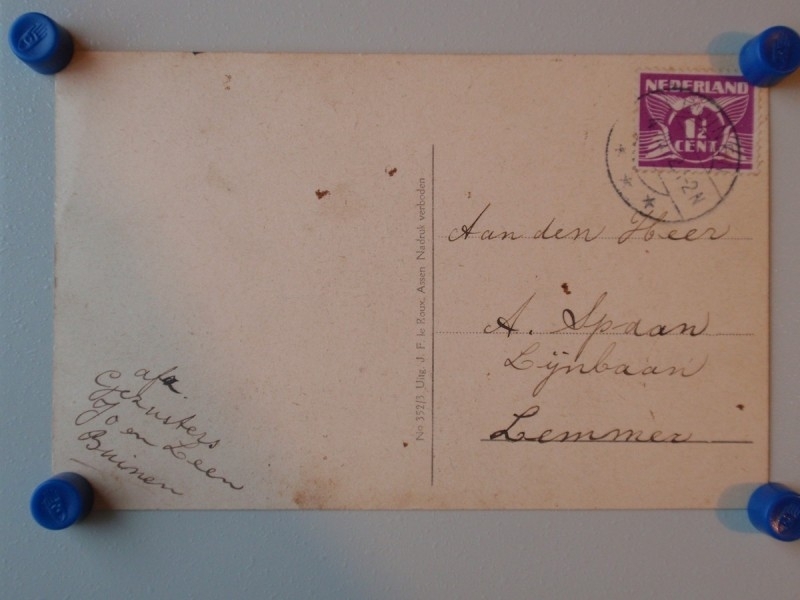 NEDERLAND
1½
CENT
Aan den Heer
A. Spaan
Lijnbaan
Lemmer
No 352/3 Uitg. J. F. le Roux, Assen Nadruk verboden
afz.
Gezusters
Jo en Leen
Buinen